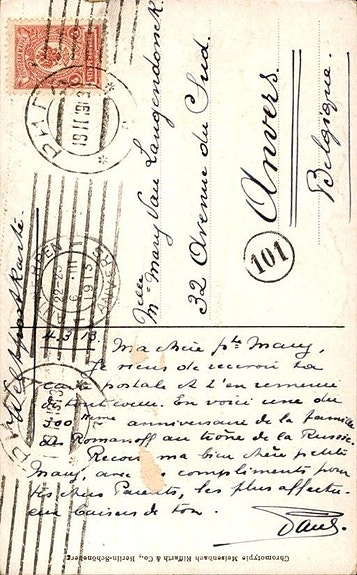 Weltpostkarte
РИГА
19 II 1913
ANTWERPEN
ANVERS
6 III
1913
Mlle
Mie Mary Van Langendonck
32 Avenue du Sud.
Anvers.
Belgique.
101
4.3.13
Ma chère pte Mary,
Je viens de recevoir ta
carte postale et t'en remercie
de tout coeur. En voici une du
300ième anniversaire de la famille
des Romanoff au trône de la Russie.
Reçois ma bien chère petite
Mary, avec compliments pour
tes chers Parents, les plus affectu-
eux baisers de ton
Paul.
Chromotypie Meisenbach Riffarth & Co., Berlin-Schöneberg